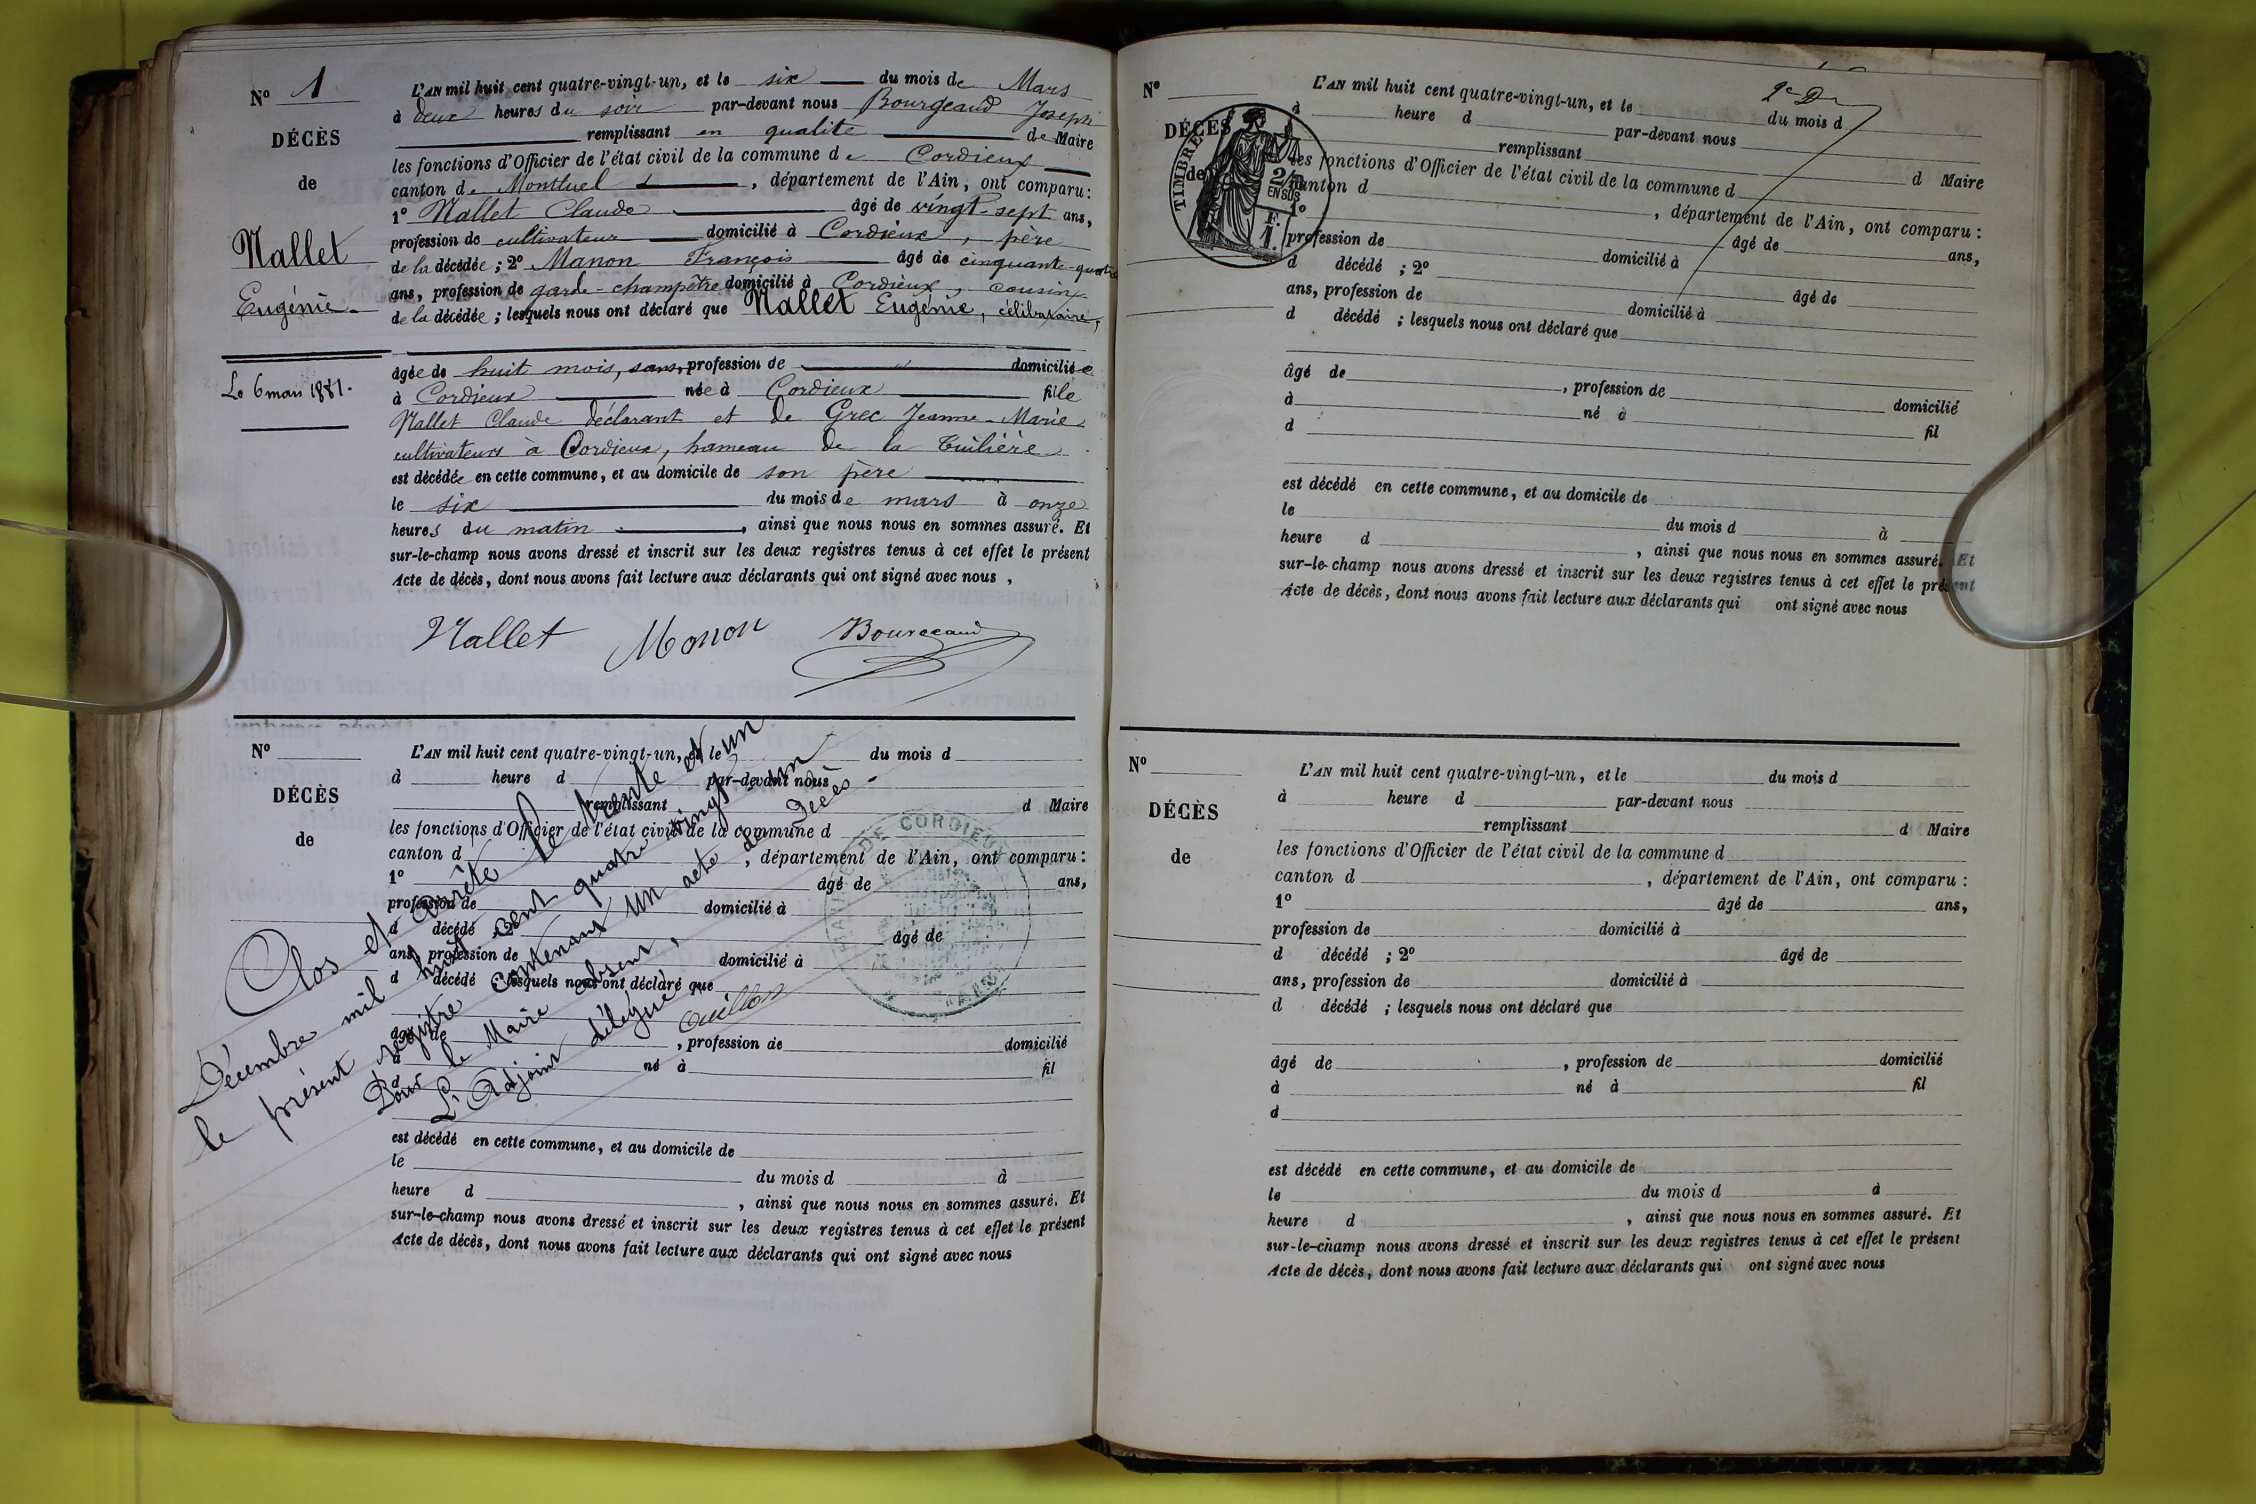 N° 1
DÉCÈS
de
Nallet
Eugénie
Le 6 mars 1881.
L'AN mil huit cent quatre-vingt-un, et le six du mois de Mars
à deux heures du soir par-devant nous Bourgeaud Joseph
remplissant en qualité de Maire
les fonctions d'Officier de l'état civil de la commune de Cordieux
canton de Montluel, département de l'Ain, ont comparu :
1° Nallet Claude âgé de vingt-sept ans,
profession de cultivateur domicilié à Cordieux, père
de la décédée ; 2° Manon François âgé de cinquante-quatre
ans, profession de garde-champêtre domicilié à Cordieux, cousin
de la décédée ; lesquels nous ont déclaré que Nallet Eugénie, célibataire,
âgée de huit mois, sans profession de domiciliée
à Cordieux née à Cordieux fille
Nallet Claude déclarant et de Grec Jeanne-Marie
cultivateurs à Cordieux, hameau de la Tuilière
est décédée en cette commune, et au domicile de son père
le six du mois de mars à onze
heures du matin, ainsi que nous nous en sommes assuré. Et
sur-le-champ nous avons dressé et inscrit sur les deux registres tenus à cet effet le présent
Acte de décès, dont nous avons fait lecture aux déclarants qui ont signé avec nous,
Nallet Monon Bourgeaud
N°
DÉCÈS
de
L'AN mil huit cent quatre-vingt-un, et le du mois d
à heure d par-devant nous
remplissant d Maire
les fonctions d'Officier de l'état civil de la commune d
canton d , département de l'Ain, ont comparu :
1° âgé de ans,
profession de domicilié à
d décédé ; 2° âgé de
ans, profession de domicilié à
d décédé ; lesquels nous ont déclaré que
âgé de , profession de domicilié
à né à fil
d
est décédé en cette commune, et au domicile de
le du mois d à
heure d , ainsi que nous nous en sommes assuré. Et
sur-le-champ nous avons dressé et inscrit sur les deux registres tenus à cet effet le présent
Acte de décès, dont nous avons fait lecture aux déclarants qui ont signé avec nous
Clos et arrêté le trente et un
Décembre mil huit cent quatre vingt un
le présent registre contenant un acte de décès.
Pour le Maire absent,
L'Adjoint délégué,
MAIRIE DE CORDIEUX
N°
DÉCÈS
de
TIMBRE
2/10
EN SUS
F.
1.
L'AN mil huit cent quatre-vingt-un, et le du mois d
à heure d par-devant nous
remplissant d Maire
les fonctions d'Officier de l'état civil de la commune d
canton d , département de l'Ain, ont comparu :
1° âgé de ans,
profession de domicilié à
d décédé ; 2° âgé de
ans, profession de domicilié à
d décédé ; lesquels nous ont déclaré que
âgé de , profession de domicilié
à né à fil
d
est décédé en cette commune, et au domicile de
le du mois d à
heure d , ainsi que nous nous en sommes assuré. Et
sur-le-champ nous avons dressé et inscrit sur les deux registres tenus à cet effet le présent
Acte de décès, dont nous avons fait lecture aux déclarants qui ont signé avec nous
N°
DÉCÈS
de
L'AN mil huit cent quatre-vingt-un, et le du mois d
à heure d par-devant nous
remplissant d Maire
les fonctions d'Officier de l'état civil de la commune d
canton d , département de l'Ain, ont comparu :
1° âgé de ans,
profession de domicilié à
d décédé ; 2° âgé de
ans, profession de domicilié à
d décédé ; lesquels nous ont déclaré que
âgé de , profession de domicilié
à né à fil
d
est décédé en cette commune, et au domicile de
le du mois d à
heure d , ainsi que nous nous en sommes assuré. Et
sur-le-champ nous avons dressé et inscrit sur les deux registres tenus à cet effet le présent
Acte de décès, dont nous avons fait lecture aux déclarants qui ont signé avec nous